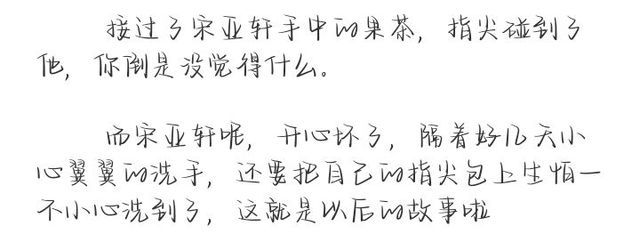 接过了宋亚轩手中的果茶，指尖碰到了
他，你倒是没觉得什么。
而宋亚轩呢，开心坏了，隔着好几天小
心翼翼的洗手，还要把自己的指尖包上生怕一
不小心洗到了，这就是以后的故事啦